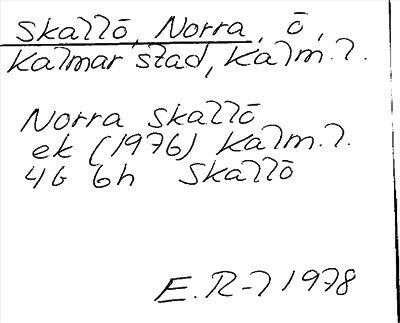 Skallö, Norra, ö,
Kalmar stad, Kalm. l.
Norra Skallö
ek (1976) Kalm. l.
4G 6h Skallö
E. R-l 1978